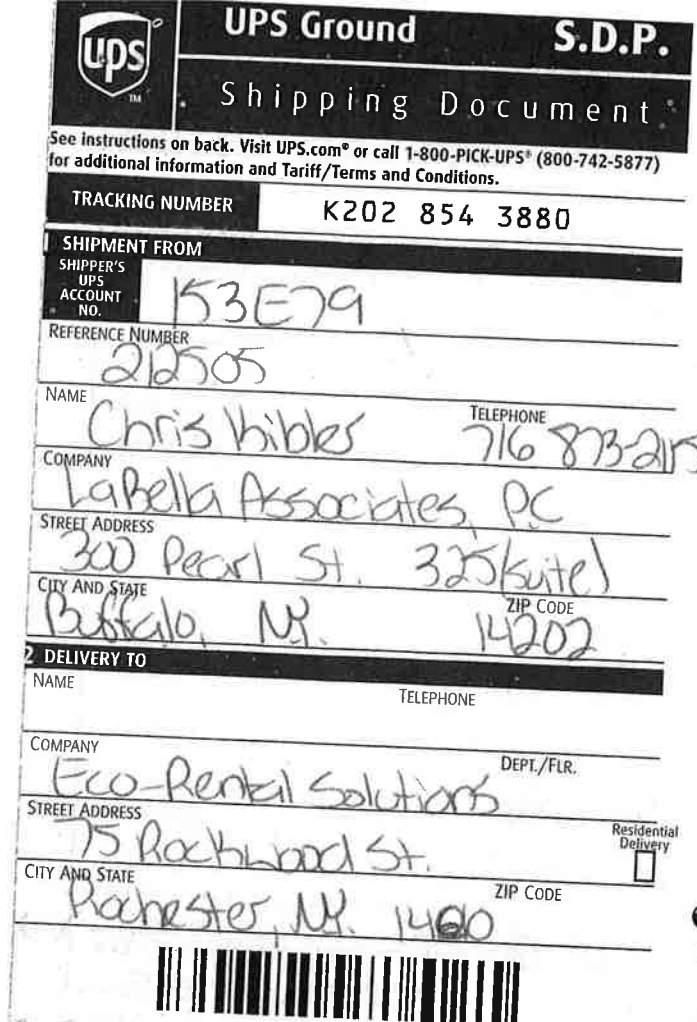 ups
TM
UPS Ground S.D.P.
Shipping Document
See instructions on back. Visit UPS.com® or call 1-800-PICK-UPS® (800-742-5877)
for additional information and Tariff/Terms and Conditions.
TRACKING NUMBER K202 854 3880
1 SHIPMENT FROM
SHIPPER'S
UPS
ACCOUNT
NO.
153E79
REFERENCE NUMBER
212505
NAME TELEPHONE
Chris Kibler 716 873-215
COMPANY
LaBella Associates, PC
STREET ADDRESS
300 Pearl St. 325(suite)
CITY AND STATE ZIP CODE
Buffalo, NY. 14202
2 DELIVERY TO
NAME TELEPHONE
COMPANY DEPT./FLR.
Eco-Rental Solutions
STREET ADDRESS Residential
Delivery
75 Rockwood St.
CITY AND STATE ZIP CODE
Rochester, NY.